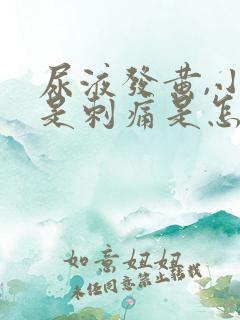 尿液發黃,小
是刺痛是怎
如意妞妞
未经同意禁止转载